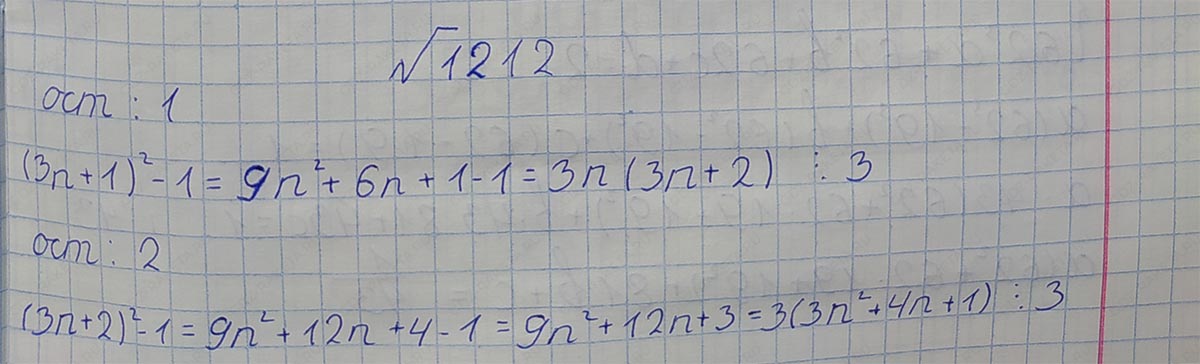 √1212
ост : 1
(3n+1)²-1 = 9n²+6n+1-1 = 3n(3n+2) ⋮ 3
ост : 2
(3n+2)²-1 = 9n²+12n+4-1 = 9n²+12n+3 = 3(3n²+4n+1) ⋮ 3